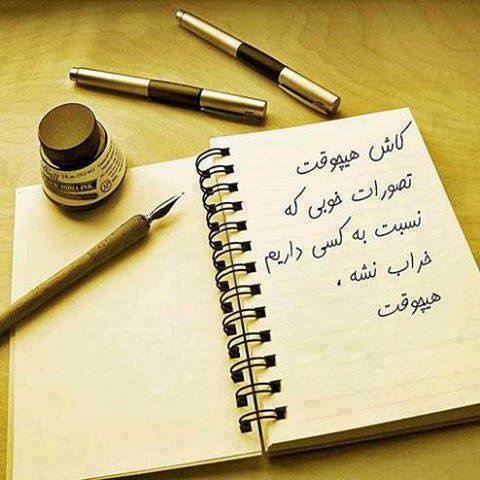 کاش هیچوقت
تصورات خوبی که
نسبت به کسی داریم
خراب نشه ،
هیچوقت
INDIA INK